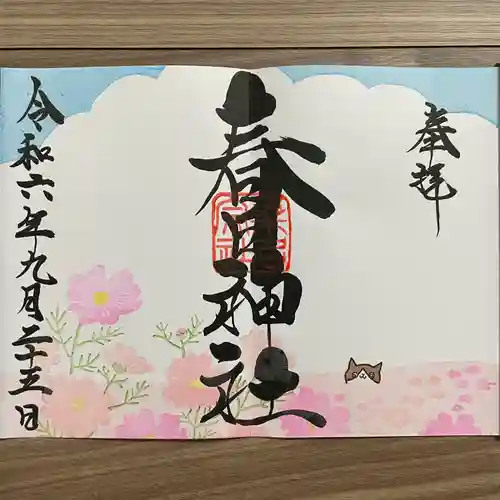 奉拝
春日神社
令和六年九月二十五日